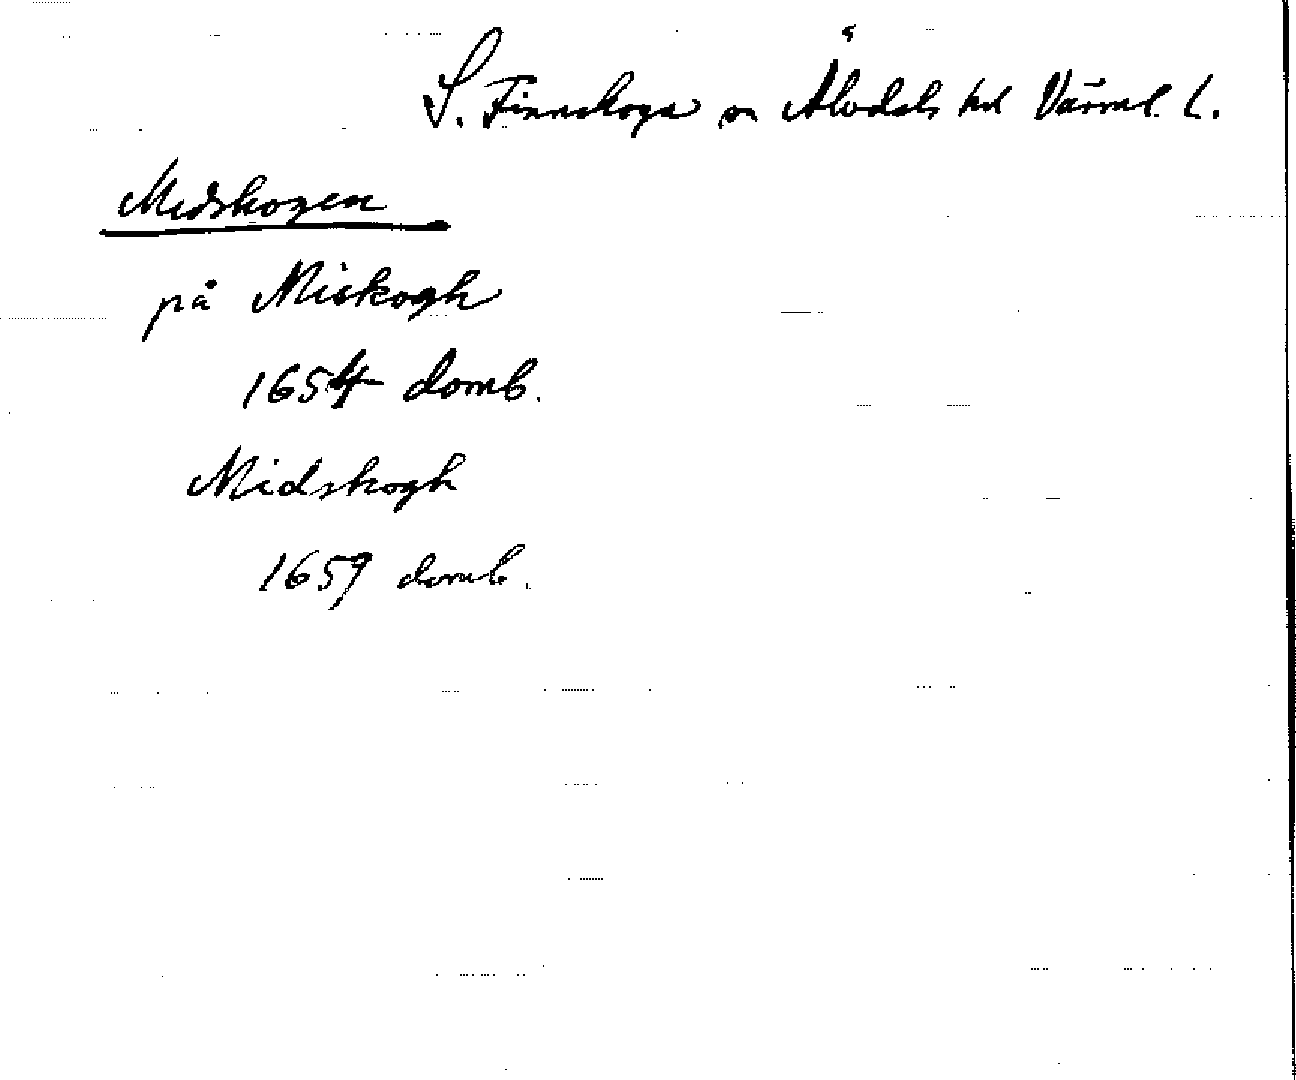 S. Finnskoga sn Älvdals hd Värml. l.
Medskogen
på Miskogh
1654 domb.
Midskogh
1659 domb.